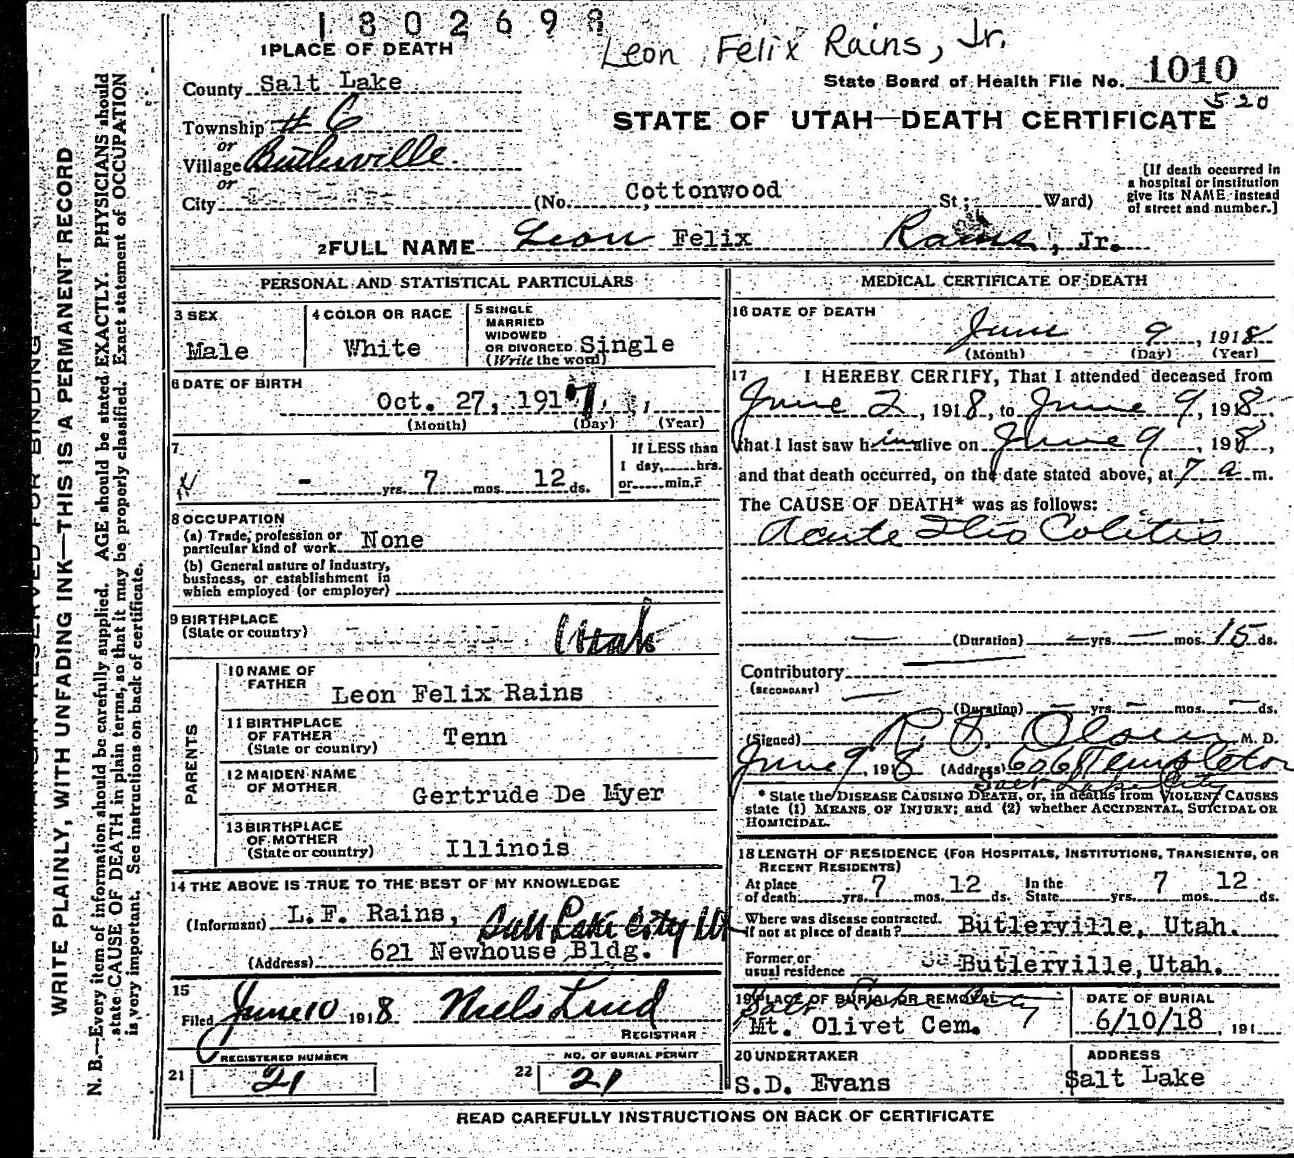 1802699
Leon Felix Rains, Jr.
1 PLACE OF DEATH
State Board of Health File No. 1010
520
County Salt Lake
STATE OF UTAH—DEATH CERTIFICATE
Township # 6
or
Village Butlerville
or
City (No. Cottonwood St; Ward)
[If death occurred in
a hospital or institution
give its NAME instead
of street and number.]
2 FULL NAME Leon Felix Rains, Jr.
PERSONAL AND STATISTICAL PARTICULARS
3 SEX
Male
4 COLOR OR RACE
White
5 SINGLE
MARRIED
WIDOWED
OR DIVORCED Single
(Write the word)
6 DATE OF BIRTH
Oct. 27, 1917
(Month) (Day) (Year)
7
- yrs. 7 mos. 12 ds.
If LESS than
1 day, hrs.
or min.?
8 OCCUPATION
(a) Trade, profession or
particular kind of work None
(b) General nature of industry,
business, or establishment in
which employed (or employer)
9 BIRTHPLACE
(State or country) Utah
PARENTS
10 NAME OF
FATHER
Leon Felix Rains
11 BIRTHPLACE
OF FATHER
(State or country) Tenn
12 MAIDEN NAME
OF MOTHER
Gertrude De Myer
13 BIRTHPLACE
OF MOTHER
(State or country) Illinois
14 THE ABOVE IS TRUE TO THE BEST OF MY KNOWLEDGE
(Informant) L.F. Rains, Salt Lake City Ut
(Address) 621 Newhouse Bldg.
15
Filed June 10 1918 Niels Lind
REGISTRAR
REGISTERED NUMBER
21 21
NO. OF BURIAL PERMIT
22 21
MEDICAL CERTIFICATE OF DEATH
16 DATE OF DEATH
June 9, 1918
(Month) (Day) (Year)
17 I HEREBY CERTIFY, That I attended deceased from
June 2, 1918, to June 9, 1918
that I last saw him alive on June 9, 1918,
and that death occurred, on the date stated above, at 7 a m.
The CAUSE OF DEATH* was as follows:
Acute Ilio Colitis
(Duration) yrs. mos. 15 ds.
Contributory
(SECONDARY)
(Duration) yrs. mos. ds.
(Signed) Olsen M. D.
June 9 1918 (Address) 606 Templeton
Salt Lake City
* State the DISEASE CAUSING DEATH, or, in deaths from VIOLENT CAUSES
state (1) MEANS OF INJURY; and (2) whether ACCIDENTAL, SUICIDAL OR
HOMICIDAL.
18 LENGTH OF RESIDENCE (FOR HOSPITALS, INSTITUTIONS, TRANSIENTS, OR
RECENT RESIDENTS)
At place
of death yrs. 7 mos. 12 ds. In the
State yrs. 7 mos. 12 ds.
Where was disease contracted.
if not at place of death? Butlerville, Utah.
Former or
usual residence Butlerville, Utah.
19 PLACE OF BURIAL OR REMOVAL
Salt Lake City
Mt. Olivet Cem.
DATE OF BURIAL
6/10/18, 191
20 UNDERTAKER
S.D. Evans
ADDRESS
Salt Lake
READ CAREFULLY INSTRUCTIONS ON BACK OF CERTIFICATE
MARGIN RESERVED FOR BINDING
WRITE PLAINLY, WITH UNFADING INK—THIS IS A PERMANENT RECORD
N. B.—Every item of information should be carefully supplied. AGE should be stated EXACTLY. PHYSICIANS should
state CAUSE OF DEATH in plain terms, so that it may be properly classified. Exact statement of OCCUPATION
is very important. See instructions on back of certificate.